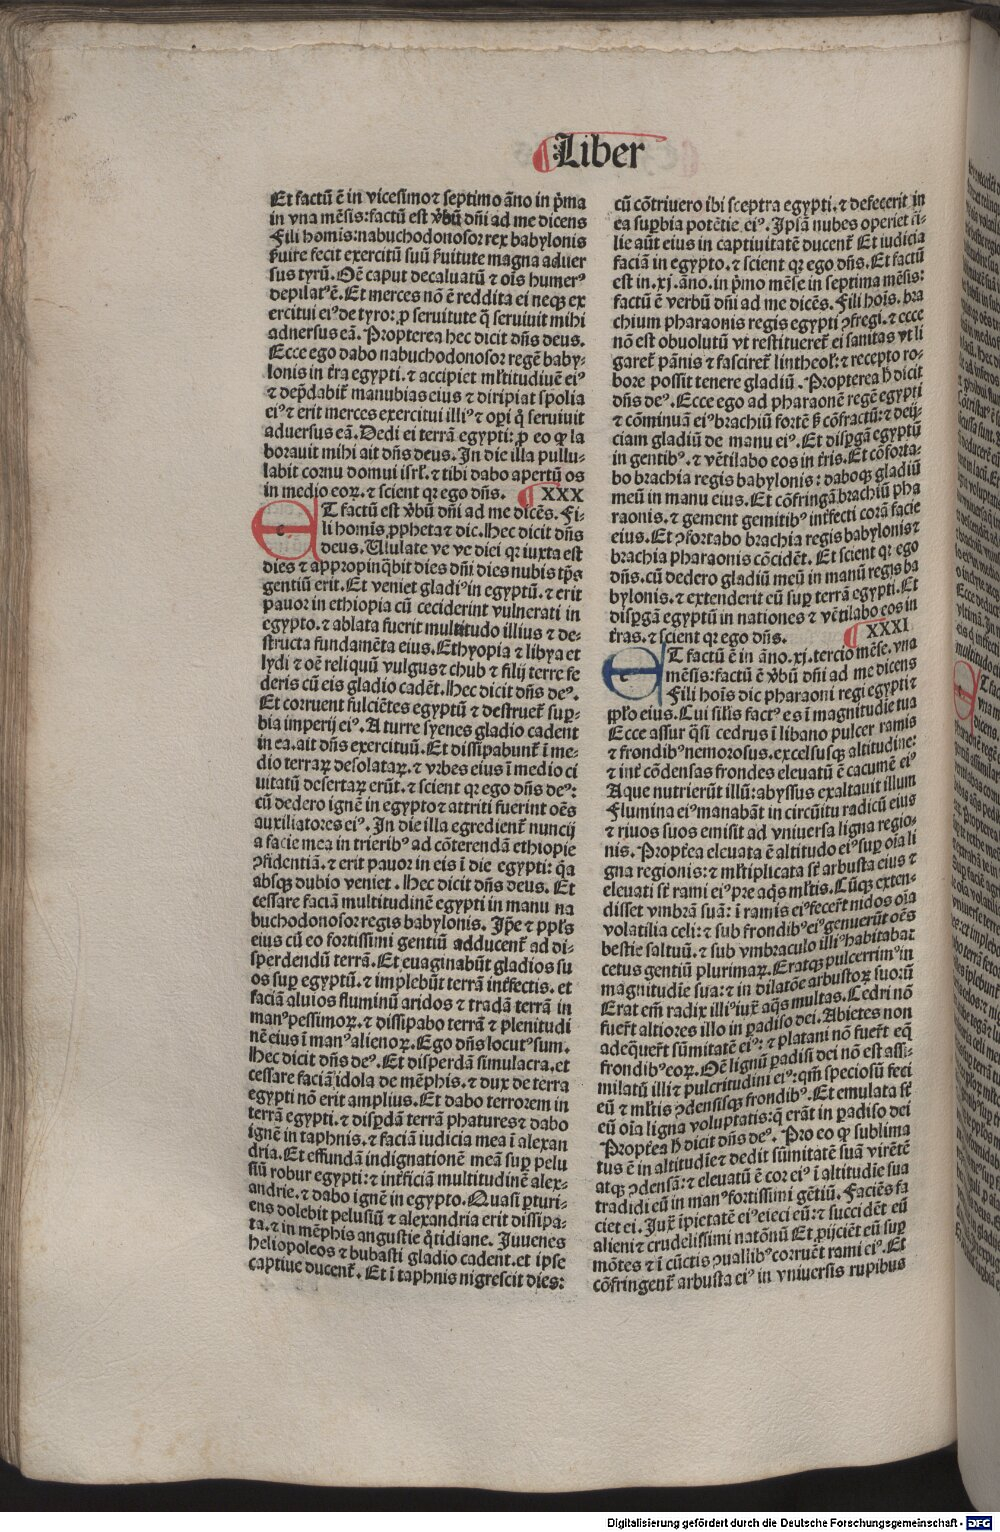 Liber
Et factū ē in vicesimo ⁊ septimo āno in p̄ma
in vna mēsis: factū est v̄bū dn̄i ad me dicens
Fili homīs: nabuchodonosor rex babylonis
ẜuire fecit exercitū suū ẜuitute magna aduer
sus tyrū. Oē caput decaluatū ⁊ oīs humerꝰ
depilatꝰ ē. Et merces nō ē reddita ei neqꝫ ex
ercitui eiꝰ de tyro: ꝓ seruitute q̄ seruiuit mihi
aduersus eā. Propterea hec dicit dn̄s deus.
Ecce ego dabo nabuchodonosor regē baby-
lonis in t̄ra egypti. ⁊ accipiet ml̄titudinē eiꝰ
⁊ dep̄dabit̄ manubias eius ⁊ diripiat spolia
eiꝰ ⁊ erit merces exercitui illiꝰ ⁊ oꝑi q̄ seruiuit
aduersus eā. Dedi ei terrā egypti: ꝓ eo ꝙ la
borauit mihi ait dn̄s deus. In die illa pullu-
labit cornu domui isrl̄. ⁊ tibi dabo apertū os
in medio eoꝝ. ⁊ scient qꝛ ego dn̄s. XXX
ET factū est v̄bū dn̄i ad me dicēs. Fi-
li homīs ꝓpheta ⁊ dic. Hec dicit dn̄s
deus. Ululate ve ve diei qꝛ iuxta est
dies ⁊ appropinq̄bit dies dn̄i dies nubis tp̄s
gentiū erit. Et veniet gladiꝰ in egyptū. ⁊ erit
pauor in ethiopia cū ceciderint vulnerati in
egypto. ⁊ ablata fuerit multitudo illius ⁊ de-
structa fundamēta eius. Ethyopia ⁊ libya et
lydi ⁊ oē reliquū vulgus ⁊ chub ⁊ filij terre fe
deris cū eis gladio cadēt. Hec dicit dn̄s deꝰ.
Et corruent fulciētes egyptū ⁊ destruet̄ suꝑ-
bia imperij eiꝰ. A turre syenes gladio cadent
in ea. ait dn̄s exercituū. Et dissipabunt̄ ī me-
dio terraꝝ desolataꝝ. ⁊ vrbes eius ī medio ci
uitatū desertaꝝ erūt. ⁊ scient qꝛ ego dn̄s deꝰ:
cū dedero ignē in egypto ⁊ attriti fuerint oēs
auxiliatores eiꝰ. In die illa egredient̄ nuncij
a facie mea in trieribꝰ ad cōterendā ethiopie
ꝯfidentiā. ⁊ erit pauor in eis ī die egypti: q̄a
absqꝫ dubio veniet. Hec dicit dn̄s deus. Et
cessare faciā multitudinē egypti in manu na
buchodonosor regis babylonis. Ip̄e ⁊ ppl̄s
eius cū eo fortissimi gentiū adducent̄ ad di-
sperdendū terrā. Et euaginabūt gladios su
os suꝑ egyptū. ⁊ implebūt terrā int̄fectis. et
faciā alueos fluminū aridos ⁊ tradā terrā in
manꝰ pessimoꝝ. ⁊ dissipabo terrā ⁊ plenitudi
nē eius ī manꝰ alienoꝝ. Ego dn̄s locutꝰ sum.
Hec dicit dn̄s deꝰ. Et disperdā simulacra. et
cessare faciā idola de mēphis. ⁊ dux de terra
egypti nō erit amplius. Et dabo terrorem in
terrā egypti. ⁊ disꝑdā terrā phatures ⁊ dabo
ignē in taphnis. ⁊ faciā iudicia mea ī alexan
dria. Et effundā indignationē meā suꝑ pelu
siū robur egypti: ⁊ int̄ficiā multitudinē alex-
andrie. ⁊ dabo ignē in egypto. Quasi ꝑturi-
ens dolebit pelusiū ⁊ alexandria erit dissipa-
ta. ⁊ in mēphis angustie q̄tidiane. Juuenes
heliopoleos ⁊ bubasti gladio cadent. et ipse
captiue ducent̄. Et ī taphnis nigrescit dies:
cū cōtriuero ibi sceptra egypti. ⁊ defecerit in
ea suꝑbia potētie eiꝰ. Ipsā nubes operiet fi-
lie aūt eius in captiuitatē ducent̄ Et iudicia
faciā in egypto. ⁊ scient qꝛ ego dn̄s. Et factū
est in. xj. āno. in p̄mo mēse in septima mēsis:
factū ē verbū dn̄i ad me dicēs. Fili hoīs. bra
chium pharaonis regis egypti ꝯfregi. ⁊ ecce
nō est obuolutū vt restitueret̄ ei sanitas vt li
garet̄ pānis ⁊ fasciret̄ lintheol̄: ⁊ recepto ro-
bore possit tenere gladiū. Propterea h̄ dicit
dn̄s deꝰ. Ecce ego ad pharaonē regē egypti
⁊ cōminuā eiꝰ brachiū fortē ẜ cōfractū: ⁊ deij-
ciam gladiū de manu eiꝰ. Et disꝑgā egyptū
in gentibꝰ. ⁊ vētilabo eos in t̄ris. Et cōforta-
bo brachia regis babylonis: daboqꝫ gladiū
meū in manu eius. Et cōfringā brachiū pha
raonis. ⁊ gement gemitibꝰ int̄fecti corā facie
eius. Et ꝯfortabo brachia regis babylonis ⁊
brachia pharaonis cōcidēt. Et scient qꝛ ego
dn̄s. cū dedero gladiū meū in manū regis ba
bylonis. ⁊ extenderit eū suꝑ terrā egypti. Et
disꝑgā egyptū in nationes ⁊ vētilabo eos in
t̄ras. ⁊ scient qꝛ ego dn̄s. XXXI
ET factū ē in āno. xj. tercio mēse. vna
mēsis: factū ē v̄bū dn̄i ad me dicens
Fili hoīs dic pharaoni regi egypti ⁊
ppl̄o eius. Cui silīs factꝰ es ī magnitudīe tua
Ecce assur q̄si cedrus ī libano pulcer ramis
⁊ frondibꝰ nemorosus. excelsusqꝫ altitudine:
⁊ int̄ cōdensas frondes eleuatū ē cacumē eiꝰ
Aque nutrierūt illū: abyssus exaltauit illum
Flumina eiꝰ manabāt in circūitu radicū eius
⁊ riuos suos emisit ad vniuersa ligna regio-
nis. Propt̄ea eleuata ē altitudo eiꝰ suꝑ oīa li
gna regionis: ⁊ ml̄tiplicata st̄ arbusta eius ⁊
eleuati st̄ rami eiꝰ pre aq̄s ml̄tis. Cūqꝫ exten-
disset vmbrā suā: ī ramis eiꝰ fecer̄t nidos oīa
volatilia celi: ⁊ sub frondibꝰ eiꝰ genuerūt oēs
bestie saltuū. ⁊ sub vmbraculo illiꝰ habitabat
cetus gentiū plurimaꝝ. Eratqꝫ pulcerrimꝰ in
magnitudīe sua: ⁊ in dilatōe arbustoꝝ suoꝝ
Erat em̄ radix illiꝰ iux̄ aq̄s multas. Cedri nō
fuer̄t altiores illo in ꝑadiso dei. Abietes non
adequer̄t sūmitatē eiꝰ: ⁊ platani nō fuer̄t eq̄
frondibꝰ eoꝝ. Oē lignū ꝑadisi dei nō est assi-
milatū illi ⁊ pulcritudini eiꝰ: qm̄ speciosū feci
eū ⁊ ml̄tis ꝯdensisqꝫ frondibꝰ. Et emulata st̄
eū oīa ligna voluptatis: q̄ erāt in ꝑadiso dei
Propt̄ea h̄ dicit dn̄s deꝰ. Pro eo ꝙ sublima
tus ē in altitudīe ⁊ dedit sūmitatē suā virētē
atqꝫ ꝯdensā: ⁊ eleuatū ē cor eiꝰ ī altitudīe sua
tradidi eū in manꝰ fortissimi gētiū. Faciēs fa
ciet ei. Jux̄ īpietatē eiꝰ eieci eū: ⁊ succidēt eū
alieni ⁊ crudelissimi natōnū Et ꝓijciēt eū suꝑ
mōtes ⁊ ī cūctis ꝯuallibꝰ corruēt rami eiꝰ. Et
cōfringent̄ arbusta eiꝰ in vniuersis rupibus
Digitalisierung gefördert durch die Deutsche Forschungsgemeinschaft - DFG